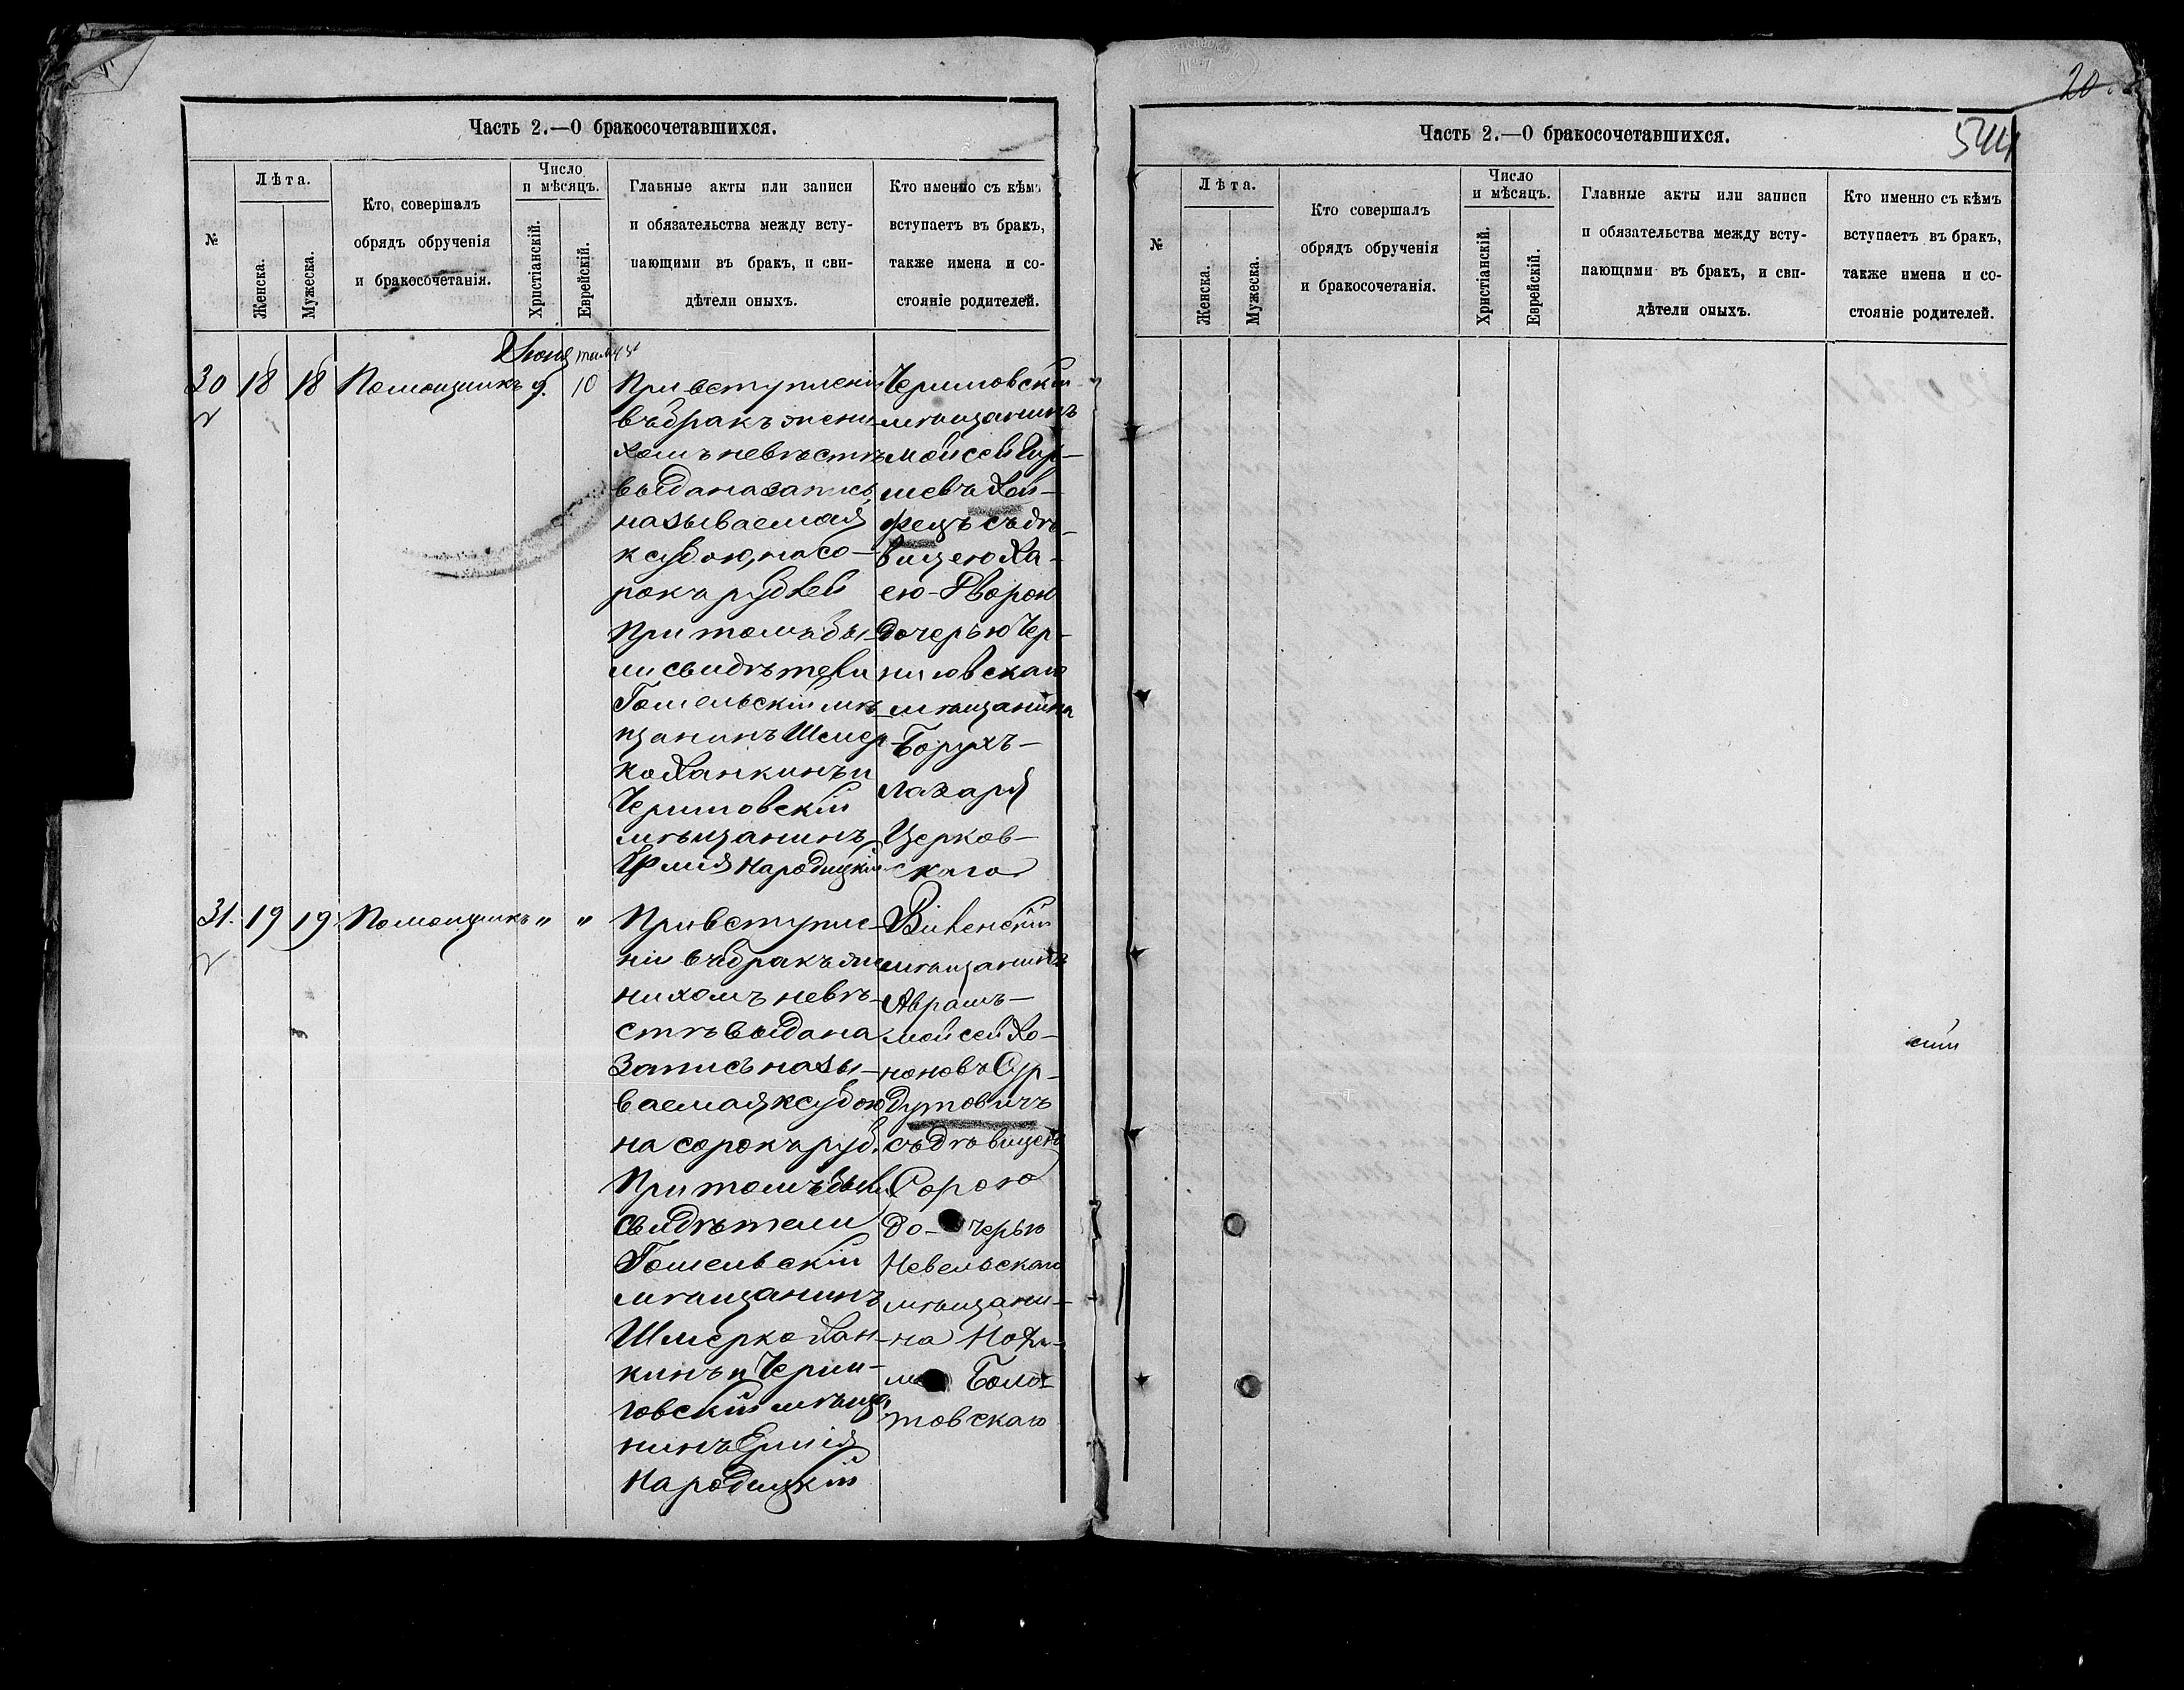 Часть 2.—О бракосочетавшихся.
№
Лѣта.
Женска.
Мужеска.
Кто совершалъ
обрядъ обрученія
и бракосочетанія.
Число
и мѣсяцъ.
Христіанскій.
Еврейскій.
Главные акты или записи
и обязательства между всту-
пающими въ бракъ, и сви-
дѣтели оныхъ.
Кто именно съ кѣмъ
вступаетъ въ бракъ,
также имена и со-
стояніе родителей.
30
18
18
Помощникъ
9.
10
При вступленіи
въ бракъ жени-
хомъ невѣстѣ
выдана запись,
называемая
ксубою, на со-
рокъ рублей
При томъ бы-
ли свидѣтели
Гомельскій мѣ-
щанинъ Шмер-
ко Ханкинъ и
Черниговскій
мѣщанинъ
Народицкій
Черниговскій
мѣщанинъ
Мойсей
шевъ Хей-
фецъ съ дѣ-
вицею Ха-
ею-Дворою
дочерью Чер-
ниговскаго
мѣщанина
Борухъ-
Лазаря
Церков-
скаго
31.
19
19
Помощникъ
"
"
При вступле-
ніи въ бракъ же-
нихомъ невѣ-
стѣ выдана
запись назы-
ваемая ксубою
на сорокъ руб.
При томъ были
свидѣтели
Гомельскій
мѣщанинъ
Шмерко Хан-
кинъ и Черни-
говскій мѣща-
нинъ Ермія
Народицкій
Виленскій
мѣщанинъ
Абрамъ-
Мойсей Хо-
ноновъ Сур-
дутовичъ
съ дѣвицею
Сорою
до-черью
Невельскаго
мѣщани-
на
Боло-
товскаго
Часть 2.—О бракосочетавшихся.
20.
544
№
Лѣта.
Женска.
Мужеска.
Кто совершалъ
обрядъ обрученія
и бракосочетанія.
Число
и мѣсяцъ.
Христіанскій.
Еврейскій.
Главные акты или записи
и обязательства между всту-
пающими въ бракъ, и сви-
дѣтели оныхъ.
Кто именно съ кѣмъ
вступаетъ въ бракъ,
также имена и со-
стояніе родителей.